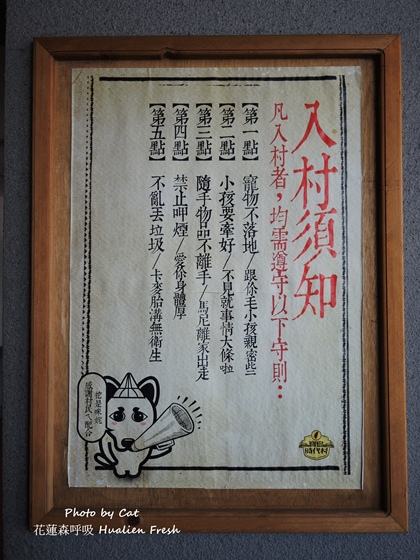 入村須知
凡入村者，均需遵守以下守則：
【第一點】寵物不落地/跟你毛小孩親密些
【第二點】小孩要牽好/不見就事情大條啦
【第三點】隨手物品不離手/馬尼離家出走
【第四點】禁止呷煙/愛你身體厚
【第五點】不亂丟垃圾/卡麥胎溝無衛生
感謝村民ㄟ配合
Photo by Cat
花蓮森呼吸 Hualien Fresh